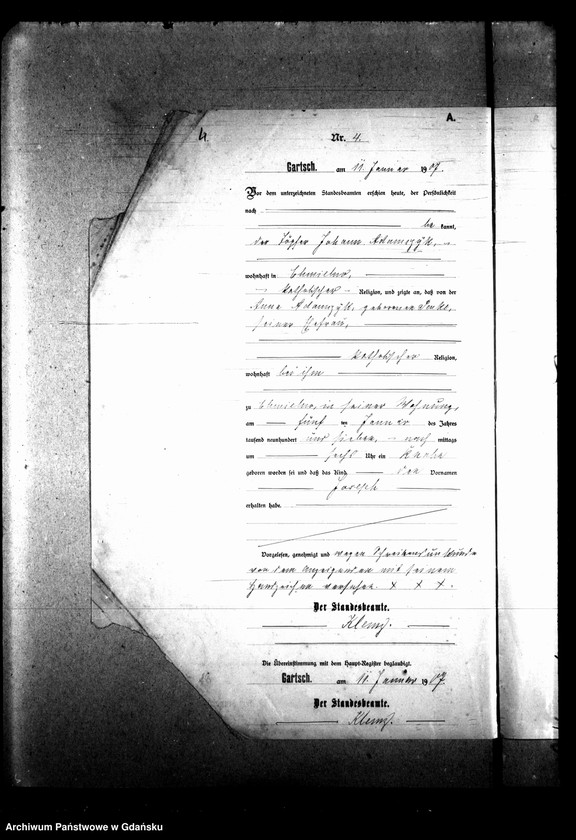 A.
4.
Nr. 4.
Gartsch. am 11. Januar 1907.
Vor dem unterzeichneten Standesbeamten erschien heute, der Persönlichkeit
nach
be kannt,
der Töpfer Johann Adamczyk,
wohnhaft in Chmielno,
katholischer Religion, und zeigte an, daß von der
Anna Adamczyk, geborenen
seiner Ehefrau,
katholischer Religion,
wohnhaft bei ihm
zu Chmielno, in seiner Wohnung,
am fünf ten Januar des Jahres
tausend neunhundert und sieben, nach mittags
um sechs Uhr ein Knabe
geboren worden sei und daß das Kind den Vornamen
Joseph
erhalten habe.
Vorgelesen, genehmigt und wegen Schreibensunkunde
von dem Anzeigenden mit seinem
Handzeichen versehen. x x x.
Der Standesbeamte.
Klemp.
Die Übereinstimmung mit dem Haupt-Register beglaubigt.
Gartsch. am 11. Januar 1907.
Der Standesbeamte.
Klemp.
Archiwum Państwowe w Gdańsku